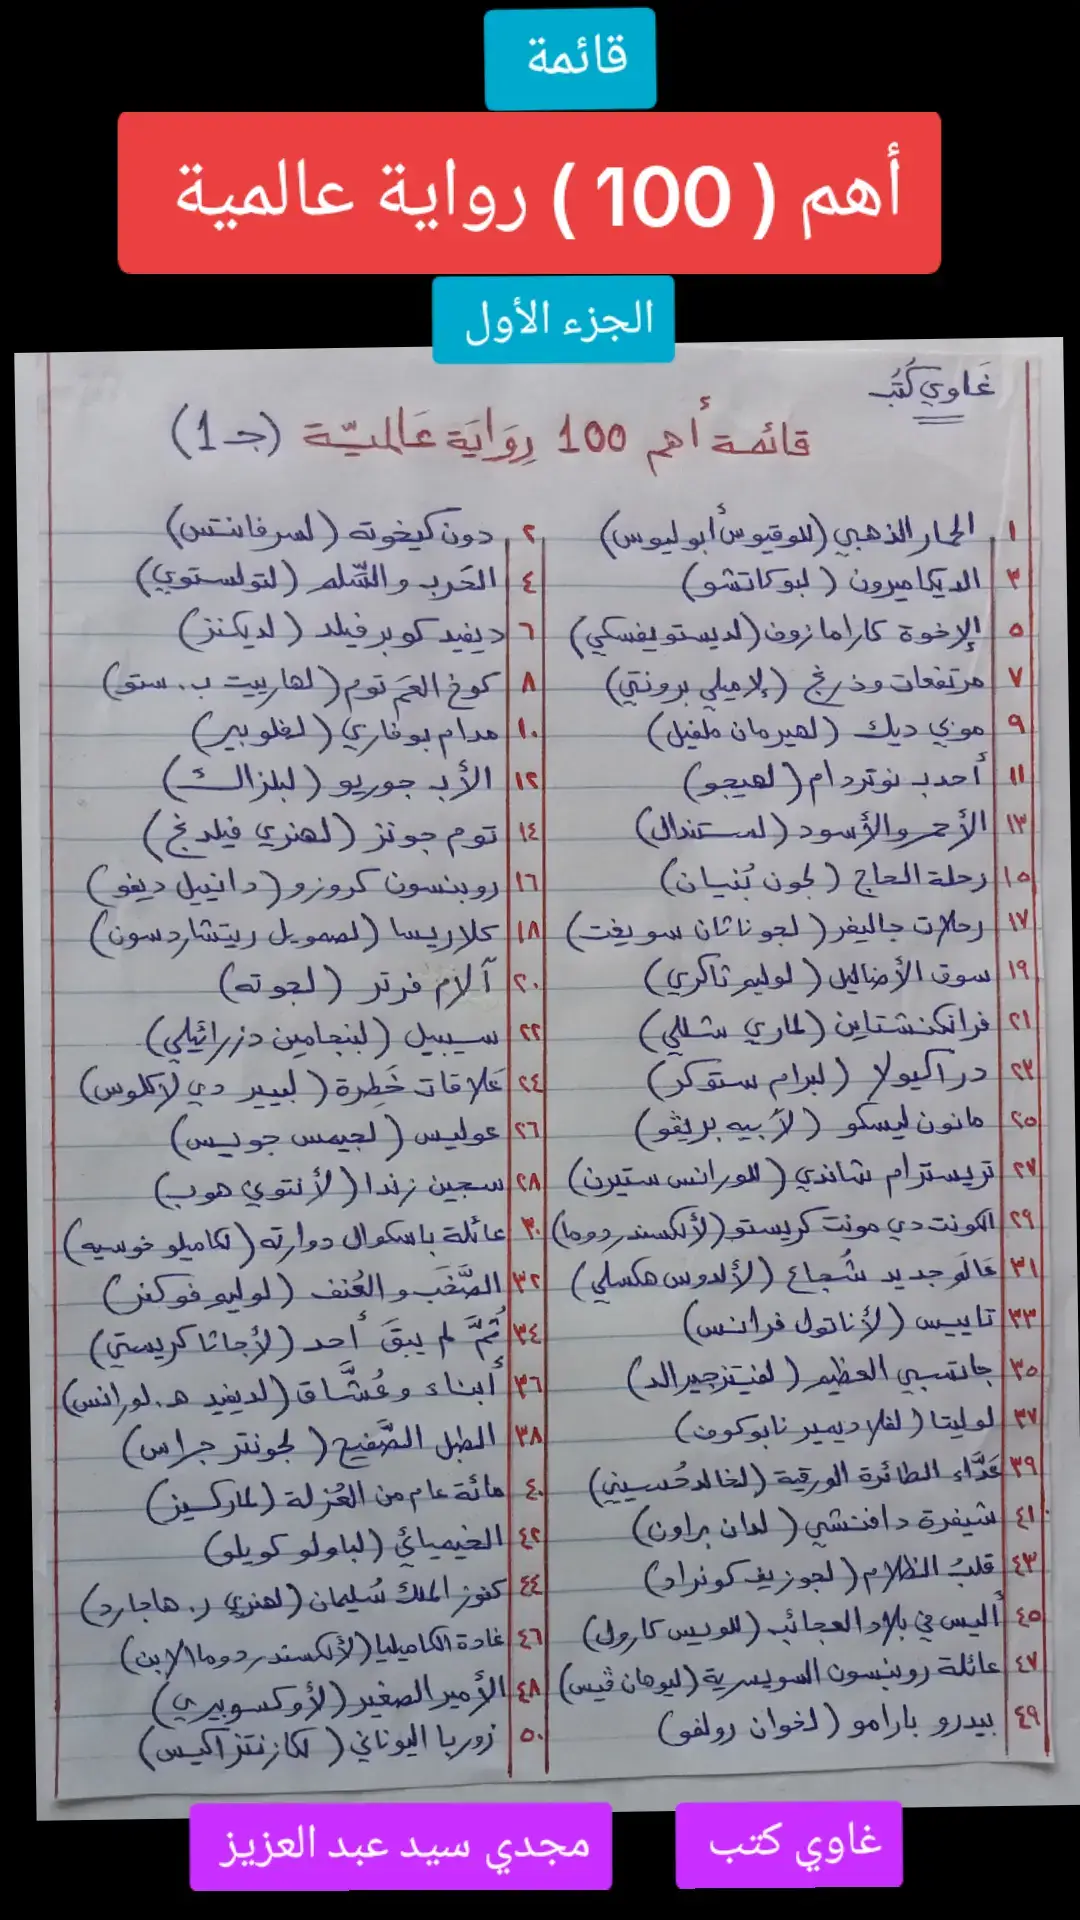 قائمة
أهم ( 100 ) رواية عالمية
الجزء الأول
غَاوي كُتُب
قائمة أهم 100 رِوَايَة عَالميّة (جـ1)
١ الحمار الذهبي (للوقيوس أبوليوس) ٢ دون كيخوته (لسرفانتس)
٣ الديكاميرون (لبوكاتشو) ٤ الحَرب والسِّلم (لتولستوي)
٥ الإخوة كارامازوف (لديستويفسكي) ٦ ديفيد كوبرفيلد (لديكنز)
٧ مرتفعات وذرنج (لإميلي برونتي) ٨ كوخ العَم توم (لهارييت ب. ستو)
٩ موبي ديك (لهيرمان ملفيل) ١٠ مدام بوفاري (لفلوبير)
١١ أحدب نوتردام (لهيجو) ١٢ الأب جوريو (لبلزاك)
١٣ الأحمر والأسود (لستندال) ١٤ توم جونز (لهنري فيلدنج)
١٥ رحلة الحاج (لجون بُنيان) ١٦ روبنسون كروزو (دانييل ديفو)
١٧ رحلات جاليفر (لجوناثان سويفت) ١٨ كلاريسا (لصمويل ريتشاردسون)
١٩ سوق الأضاليل (لوليم ثاكري) ٢٠ آلام فرتر (لجوته)
٢١ فرانكنشتاين (لماري شللي) ٢٢ سيبيل (لبنجامين دزرائيلي)
٢٣ دراكيولا (لبرام ستوكر) ٢٤ عَلاقات خَطِرة (لبيير دي لاكلوس)
٢٥ مانون ليسكو (لآبيه بريڤو) ٢٦ عوليس (لجيمس جويس)
٢٧ تريسترام شاندي (للورانس ستيرن) ٢٨ سجين زندا (لأنتوي هوب)
٢٩ الكونت دي مونت كريستو (لألكسندر دوما) ٣٠ عائلة باسكوال دوارته (لكاميلو خوسيه)
٣١ عَالَم جديد شُجاع (لألدوس هكسلي) ٣٢ الصَّخَب والعُنف (لوليم فوكنر)
٣٣ تاييس (لأناتول فرانس) ٣٤ ثُمَّ لم يبقَ أحد (لأجاثا كريستي)
٣٥ جاتسبي العظيم (لفيتزجيرالد) ٣٦ أبناء وعُشَّاق (لديفيد هـ. لورانس)
٣٧ لوليتا (لفلاديمير نابوكوف) ٣٨ الطبل الصَّفيح (لجونتر جراس)
٣٩ عَدَّاء الطائرة الورقية (لخالد حُسيني) ٤٠ مائة عام من العُزلة (لماركيز)
٤١ شيفرة دافنشي (لدان براون) ٤٢ الخيميائي (لباولو كويلو)
٤٣ قلبُ الظلام (لجوزيف كونراد) ٤٤ كنوز الملك سُليمان (لهنري ر. هاجارد)
٤٥ أليس في بلاد العجائب (للويس كارول) ٤٦ غادة الكاميليا (لألكسندر دوما الابن)
٤٧ عائلة روبنسون السويسرية (ليوهان ڤيس) ٤٨ الأمير الصغير (لأوكسوبيري)
٤٩ بيدرو بارامو (لخوان رولفو) ٥٠ زوربا اليوناني (لكازنتزاكيس)
غاوي كتب
مجدي سيد عبد العزيز